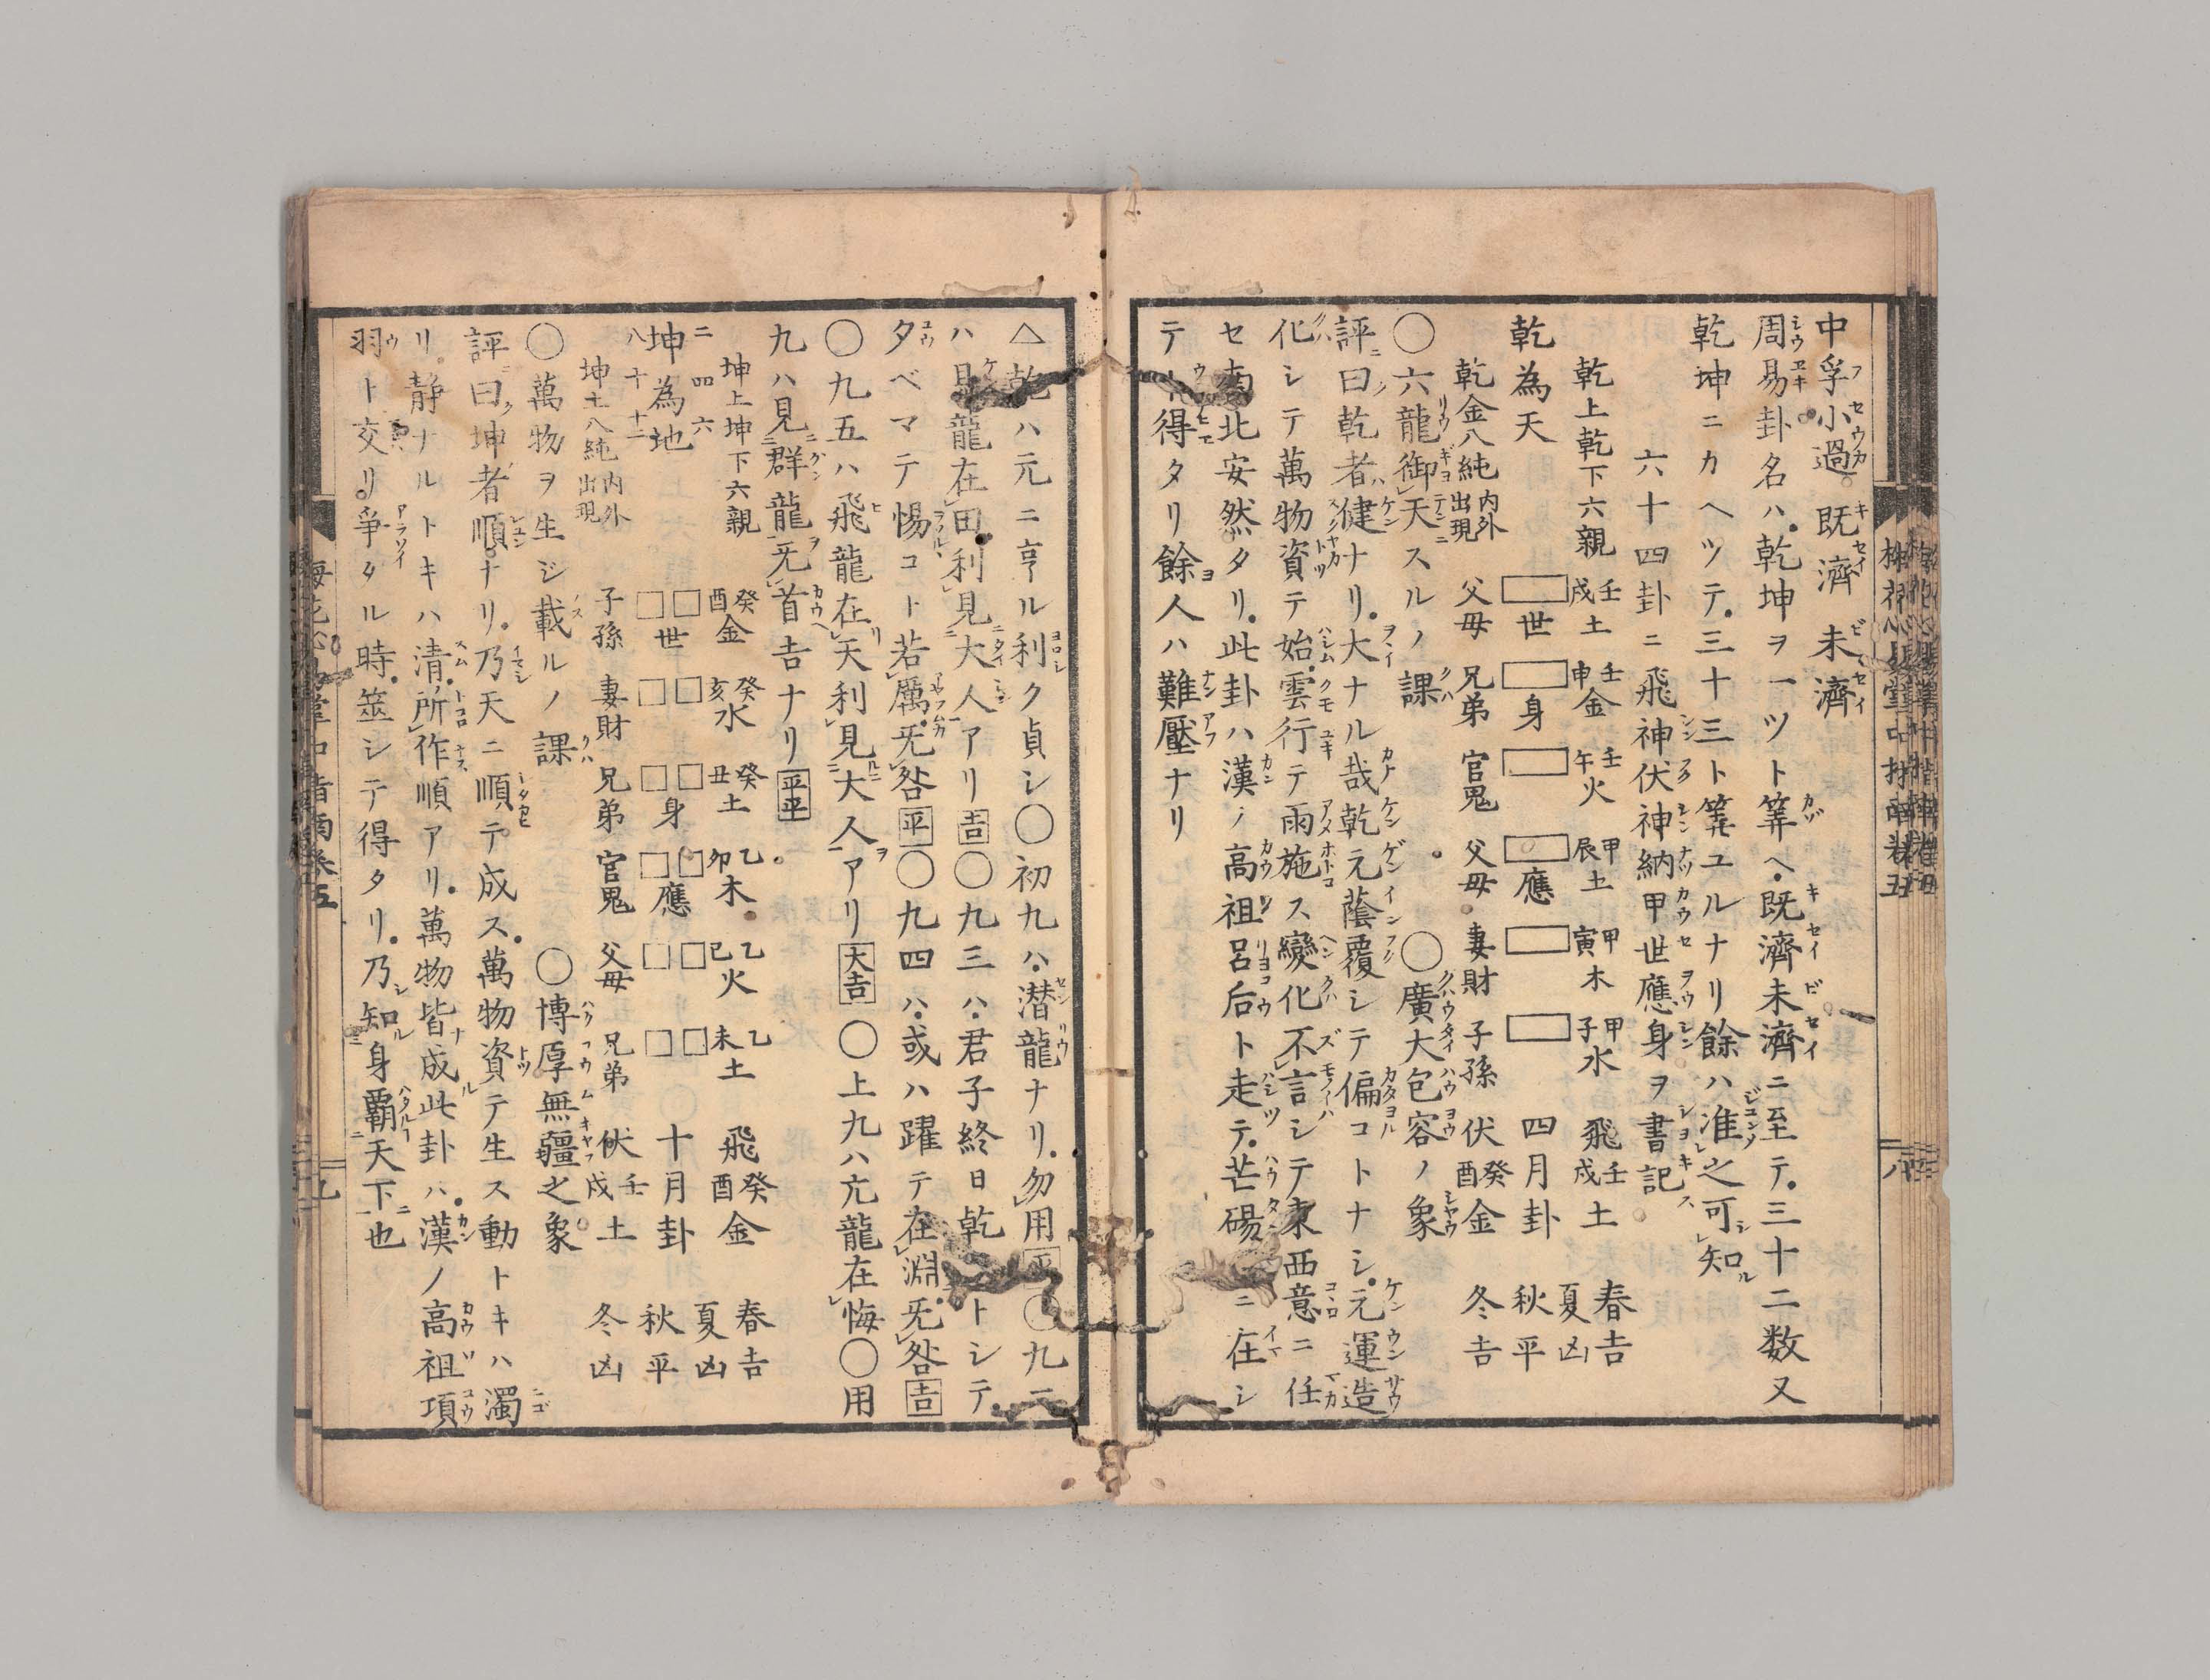 中孚小過。既濟未濟
周易卦名ハ乾坤ヲ一ツト筭ヘ既濟未濟ニ至テ三十二数又
乾坤ニカヘツテ三十三ト筭ユルナリ餘ハ准之可知
六十四卦ニ飛神伏神納甲世應身ヲ書記ス
乾上乾下六親 壬戌土 壬申金 壬午火 甲辰土 甲寅木 甲子水 飛壬戌土 春吉
夏凶
乾為天 世 身 應 四月卦 秋平
乾金八純内外出現 父母 兄弟 官鬼 父母 妻財 子孫 伏癸酉金 冬吉
〇六龍御天スルノ課 〇廣大包容ノ象
評曰乾者健ナリ大ナル哉乾元蔭覆シテ偏コトナシ元運造
化シテ萬物資テ始雲行テ雨施ス變化不言シテ東西意ニ任
セ南北安然タリ此卦ハ漢ノ高祖呂后ト走テ芒碭ニ在シ
テ得タリ餘人ハ難壓ナリ
△乾ハ元ニ亨ル利ク貞シ〇初九ハ潜龍ナリ勿用平〇九二
ハ見龍在田利見大人アリ吉〇九三ハ君子終日乾トシテ
夕ベマテ惕コト若厲无咎平〇九四ハ或ハ躍テ在淵无咎吉
〇九五ハ飛龍在天利見大人アリ大吉〇上九ハ亢龍在悔〇用
九ハ見群龍无首吉ナリ平平
坤上坤下六親 癸酉金 癸亥水 癸丑土 乙卯木 乙巳火 乙未土 飛癸酉金 春吉
二四六 夏凶
坤為地 世 身 應 十月卦 秋平
八十十二
坤土八純内外出現 子孫 妻財 兄弟 官鬼 父母 兄弟 伏壬戌土 冬凶
〇萬物ヲ生ジ載ルノ課 〇博厚無疆之象
評曰坤者順ナリ乃天ニ順テ成ス萬物資テ生ス動トキハ濁
リ静ナルトキハ清所作順アリ萬物皆成此卦ハ漢ノ高祖項
羽ト交リ爭タル時筮シテ得タリ乃知身覇天下也